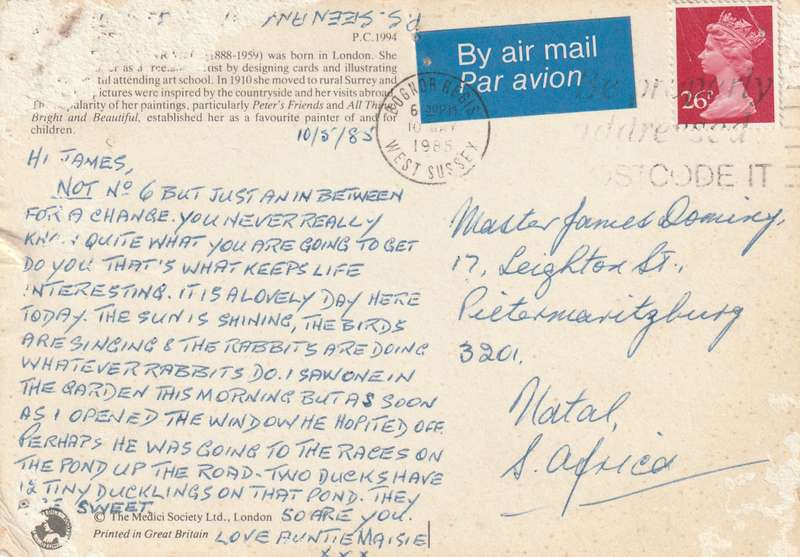 P.S. SEEN ANY
P.C.1994
(1888-1959) was born in London. She
by designing cards and illustrating
attending art school. In 1910 she moved to rural Surrey and
pictures were inspired by the countryside and her visits abroad.
popularity of her paintings, particularly Peter's Friends and All Things
Bright and Beautiful, established her as a favourite painter of and for
children.
10/5/85
HI JAMES,
NOT No 6 BUT JUST AN IN BETWEEN
FOR A CHANGE. YOU NEVER REALLY
QUITE WHAT YOU ARE GOING TO GET
DO YOU THAT'S WHAT KEEPS LIFE
INTERESTING. IT IS A LOVELY DAY HERE
TODAY. THE SUN IS SHINING, THE BIRDS
ARE SINGING & THE RABBITS ARE DOING
WHATEVER RABBITS DO. I SAW ONE IN
THE GARDEN THIS MORNING BUT AS SOON
AS I OPENED THE WINDOW HE HOPITED OFF.
PERHAPS HE WAS GOING TO THE RACES ON
THE POND UP THE ROAD - TWO DUCKS HAVE
12 TINY DUCKLINGS ON THAT POND. THEY
SWEET
SO ARE YOU.
LOVE AUNTIE MAISIE
x x x
© The Medici Society Ltd., London
Printed in Great Britain
By air mail
Par avion
26P
BOGNOR REGIS
6 30PM
10 MAY
1985
WEST SUSSEX
properly
addressed
POSTCODE IT
Master James Dominy,
17, Leighton St.,
Pietermaritzburg
3201.
Natal,
S. Africa